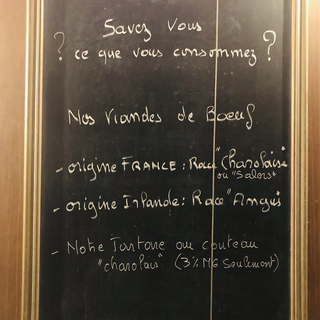 Savez vous
? ce que vous consommez ?
Nos Viandes de Boeuf
- origine FRANCE : Race "Charolaise"
ou "Salers"
- origine Irlande : Race "Angus"
- Notre Tartare au couteau
"charolais" (3% MG seulement)